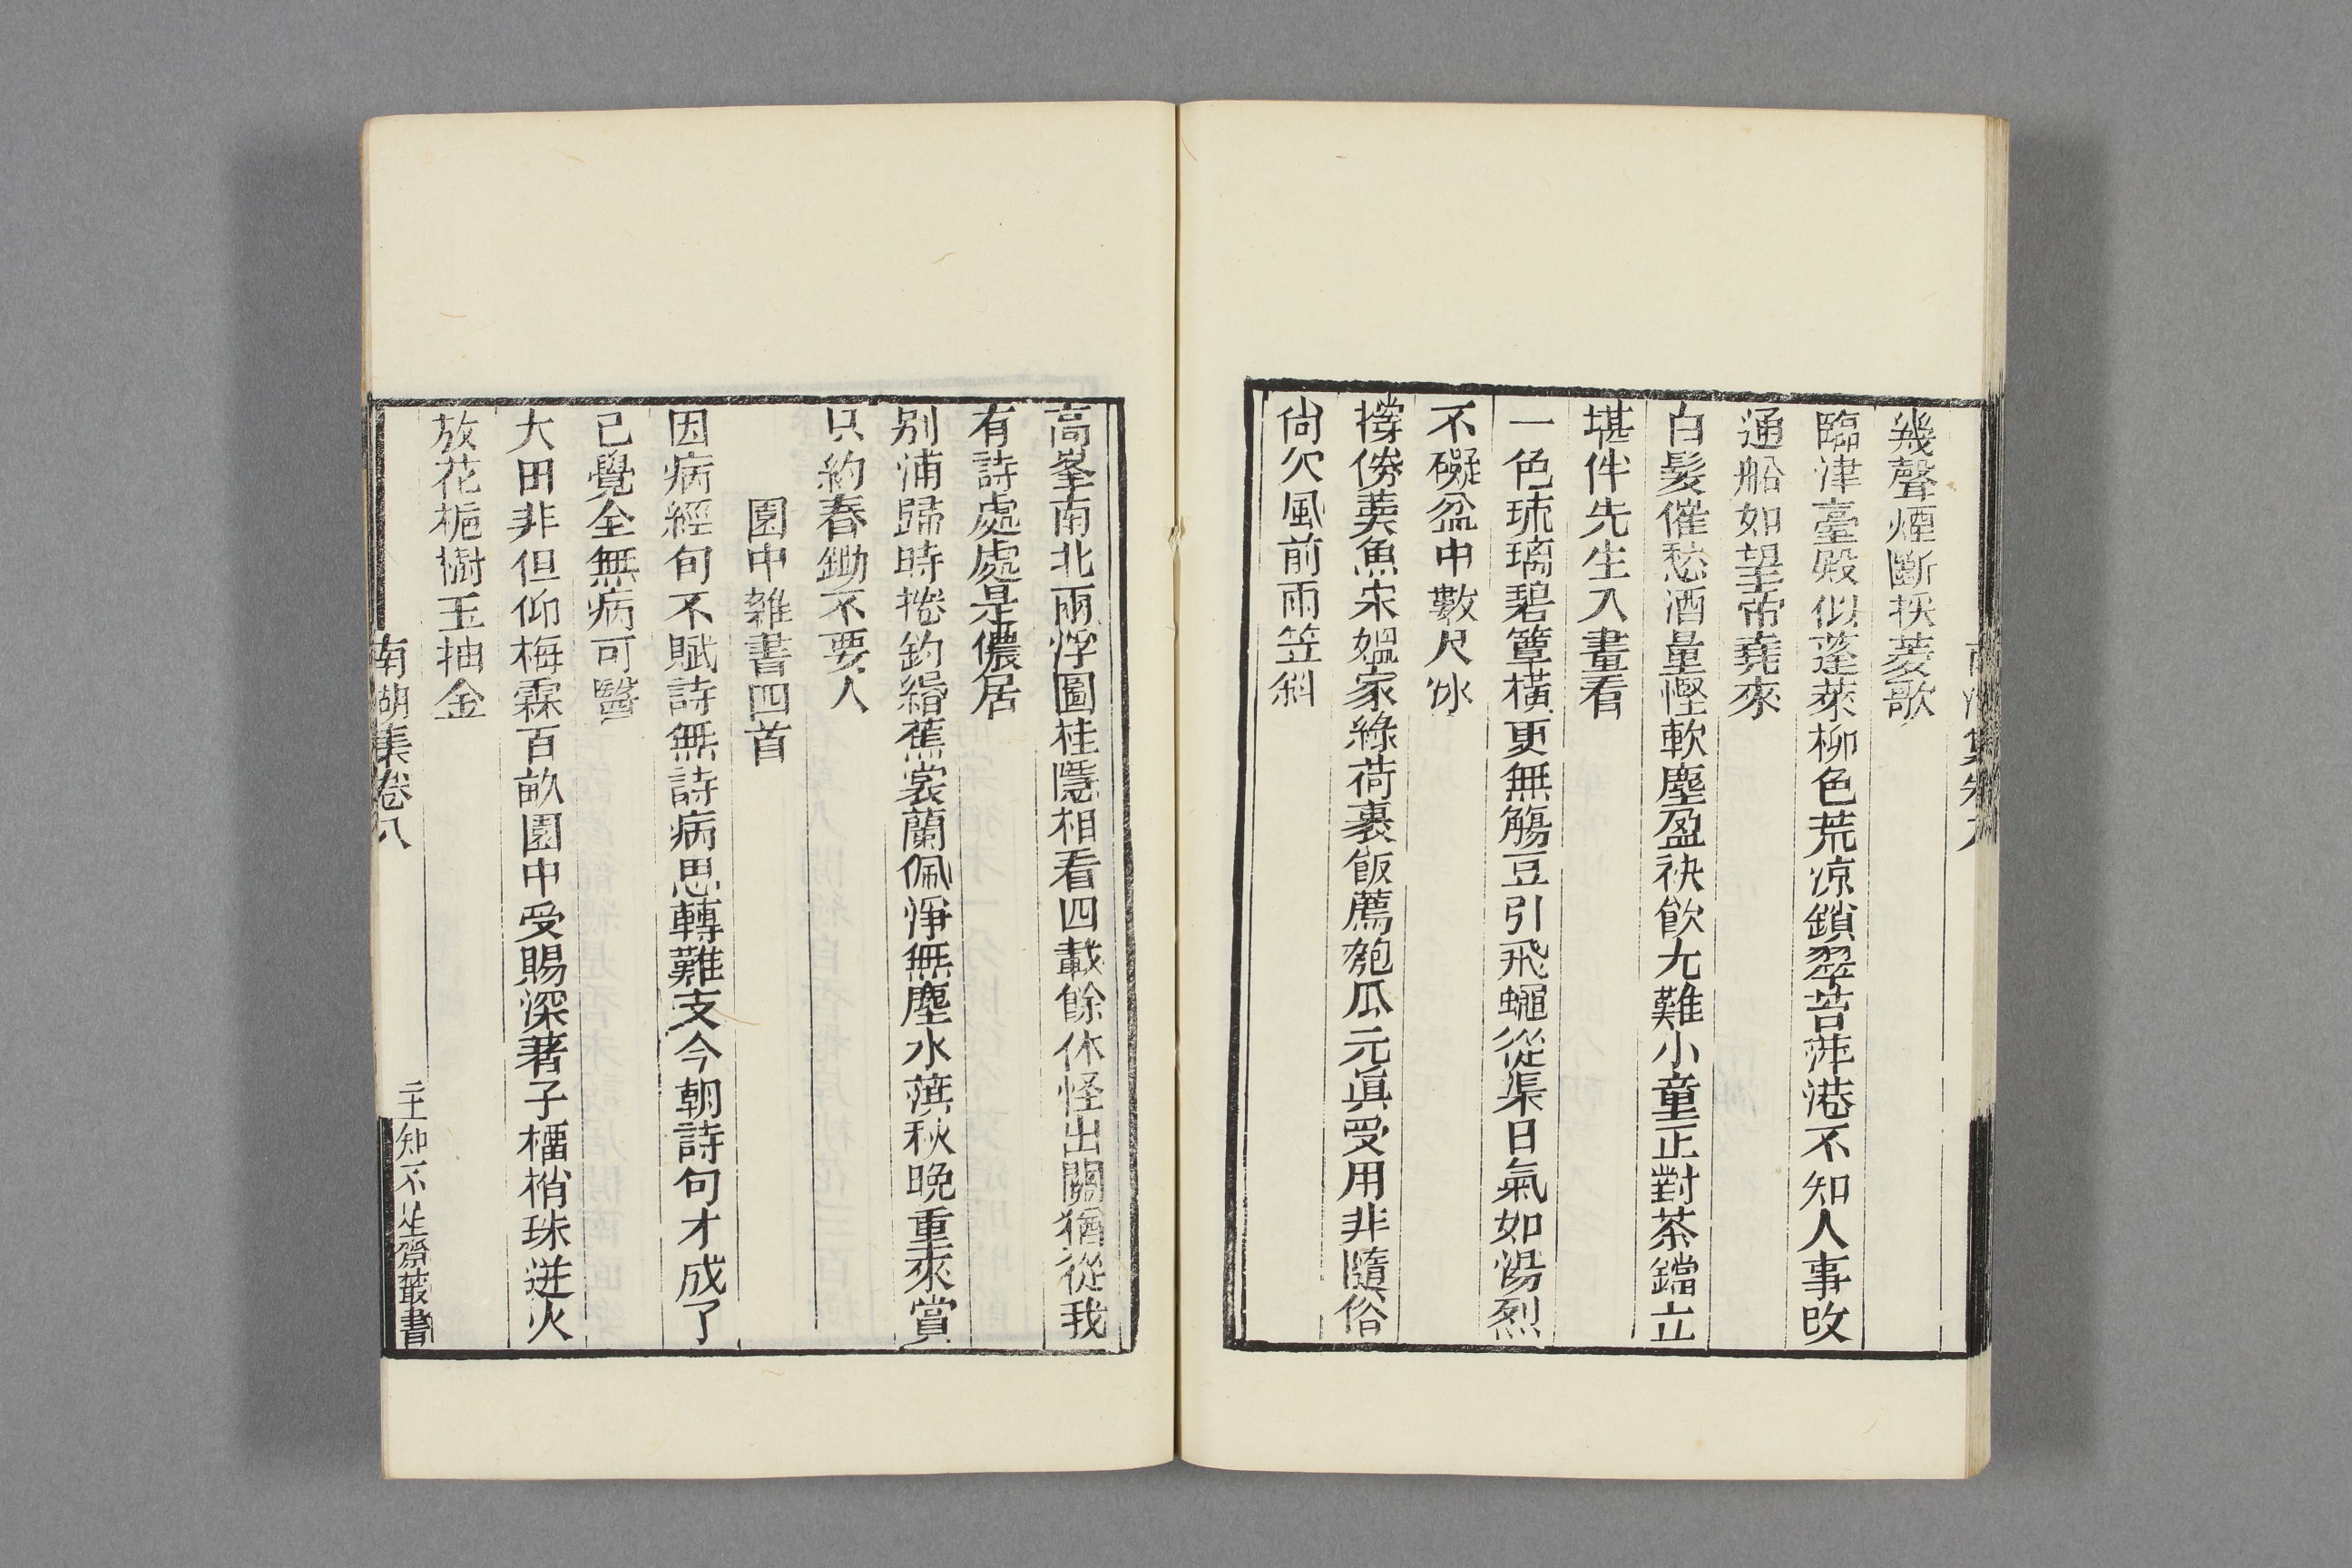 幾聲煙斷採菱歌
臨津臺殿似蓬萊柳色荒凉鎖翠苔萍港不知人事改
通船如望帝堯來
白髮催愁酒量慳軟塵盈袂飲尤難小童正對茶鐺立
堪伴先生入畫看
一色琉璃碧簟橫更無觴豆引飛蠅從渠日氣如湯烈
不礙盆中數尺冰
撐傍羮魚宋媼家綠荷裹飯薦匏瓜元眞受用非隨俗
尙欠風前雨笠斜
高峯南北兩浮圖桂隱相看四載餘休怪出關猶從我
有詩處處是儂居
別浦歸時捲釣緡蕉裳蘭佩淨無塵水葓秋晚重來賞
只約舂鋤不要人
園中雜書四首
因病經旬不賦詩無詩病思轉難支今朝詩句才成了
已覺全無病可醫
大田非但仰梅霖百畝園中受賜深著子橊梢珠迸火
放花梔樹玉抽金
南湖集卷八
知不足齋叢書